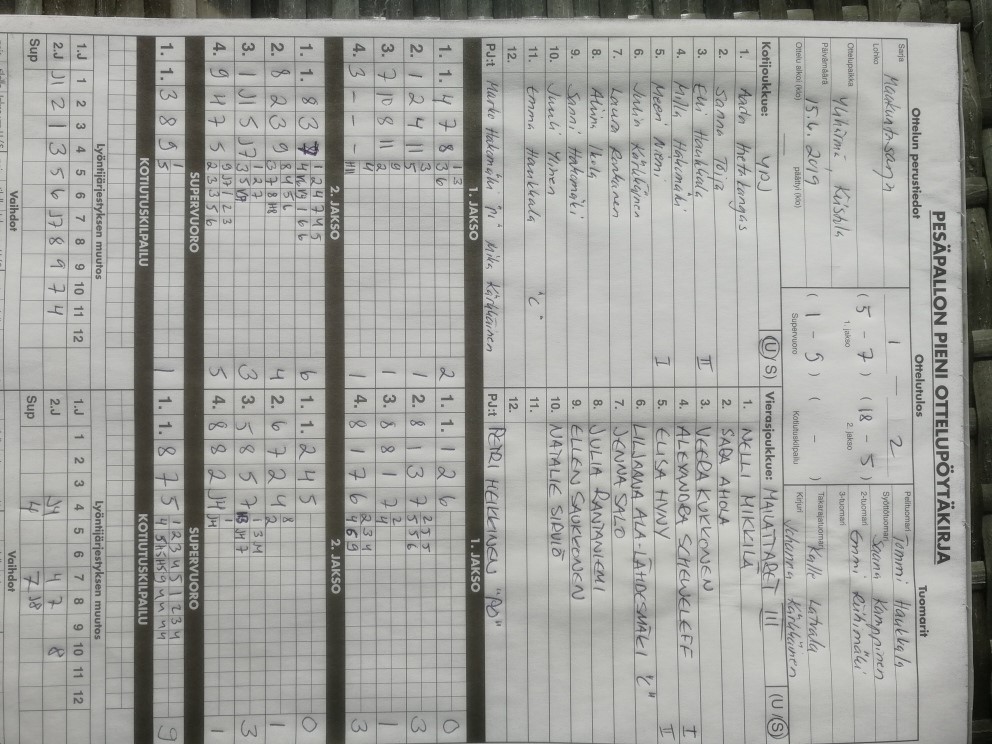 PESÄPALLON PIENI OTTELUPÖYTÄKIRJA
Ottelun perustiedot
Ottelutulos
Tuomarit
Sarja Maakuntasarja
1 2
Pelituomari Tommi Haukkala
Lohko
( 5 - 7 ) ( 18 - 5 )
1. jakso 2. jakso
Syöttötuomari Saana Kamppinen
Ottelupaikka Ylihärmä, Keskila
2-tuomari Emmi Riihimäki
3-tuomari
Päivämäärä 15.6.2019
( 1 - 9 ) ( - )
Supervuoro Kotiutuskilpailu
Takarajatuomari Kalle Latvala
Ottelu alkoi (klo) päättyi (klo)
Kirjuri Johanna Kärkkäinen
Kotijoukkue: YPJ (U/S)
1. Aada Hietakangas
2. Sanna Töija
3. Elli Haukkala II
4. Milla Hakomäki
5. Meeri Niemi I
6. Julia Kärkkäinen
7. Laura Rintanen
8. Aliina Ikola
9. Sanni Hakomäki
10. Juuli Yrinen
11. Emma Haukkala "C"
12.
PJ:t Marko Hakomäki "PJ" Mika Kärkkäinen
Vierasjoukkue: MAILATTARET III (U/S)
1. NELLI MIKKILÄ
2. SARA AHOLA
3. VEERA KUKKONEN
4. ALEXANDRA SCHENELEFF I
5. ELISA HYNY II
6. LILJANNA ALA-LÄHDESMÄKI "C"
7. JENNA SALO
8. JULIA RANTANIEMI
9. ELLEN SAUKKONEN
10. NATALIE SIPVIÖ
11.
12.
PJ:t PETRI HEIKKINEN "PO"
1. JAKSO
1. 1. 4 7 8 2
2. 1 2 4 11 1
3. 7 10 8 11 1
4. 3 - - - 1
1. JAKSO
1. 1. 1 2 6 0
2. 8 1 3 7 3
3. 8 8 1 7 1
4. 8 1 7 6 3
2. JAKSO
1. 1. 8 3 6
2. 8 2 3 9 4
3. 1 J1 5 J7 3
4. 9 4 7 5 5
2. JAKSO
1. 1. 2 4 5 0
2. 6 7 2 4 1
3. 5 8 5 7 3
4. 8 8 2 J4 1
SUPERVUORO
1. 1. 3 8 9 5 1
SUPERVUORO
1. 1. 8 7 5 9
KOTIUTUSKILPAILU
KOTIUTUSKILPAILU
Lyöntijärjestyksen muutos
1 2 3 4 5 6 7 8 9 10 11 12
1.J
2.J J1 2 1 3 5 6 J7 8 9 7 4
Sup
Lyöntijärjestyksen muutos
1 2 3 4 5 6 7 8 9 10 11 12
1.J
2.J J4 4 7 8
Sup 4 7 J8
Vaihdot
Vaihdot